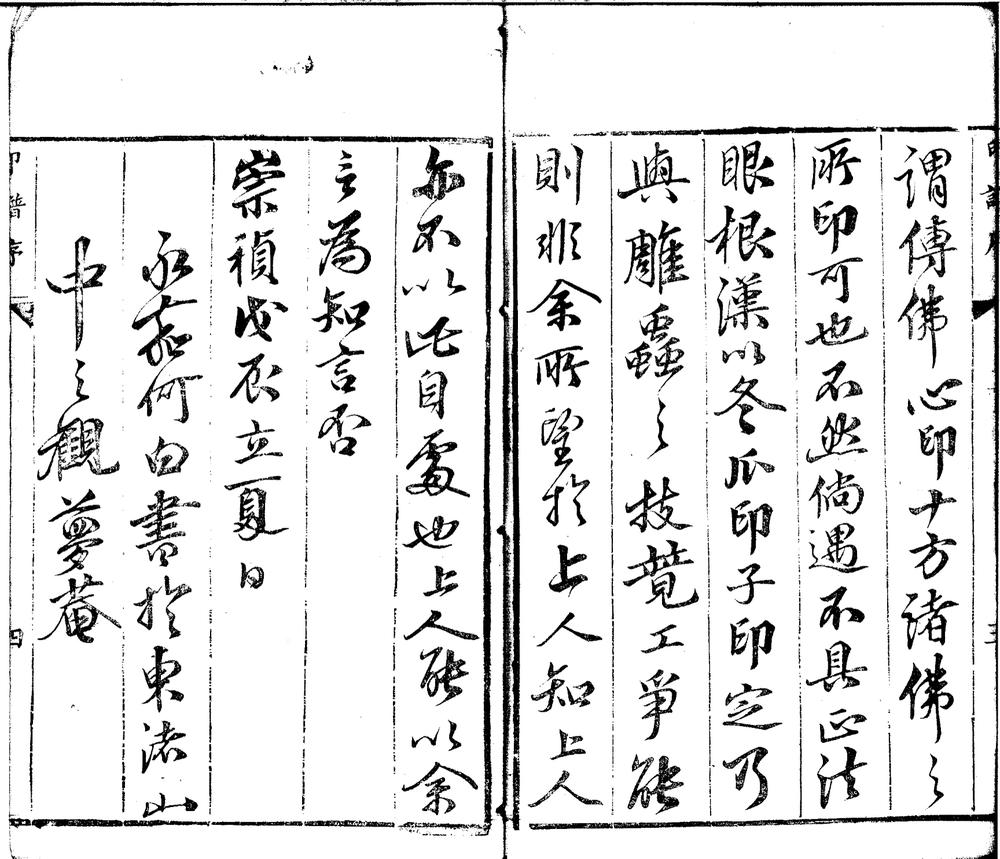 謂傳佛心印十方諸佛之
所印可也不然倘遇不具正法
眼根漢以冬瓜印子印定乃
與雕蟲之技競工爭能
則非余所望於上人知上人
亦不以此自處也上人能以余
言為知言否
崇禎戊辰立夏日
永嘉何白書於東渚山
中之觀夢菴
印譜序
四